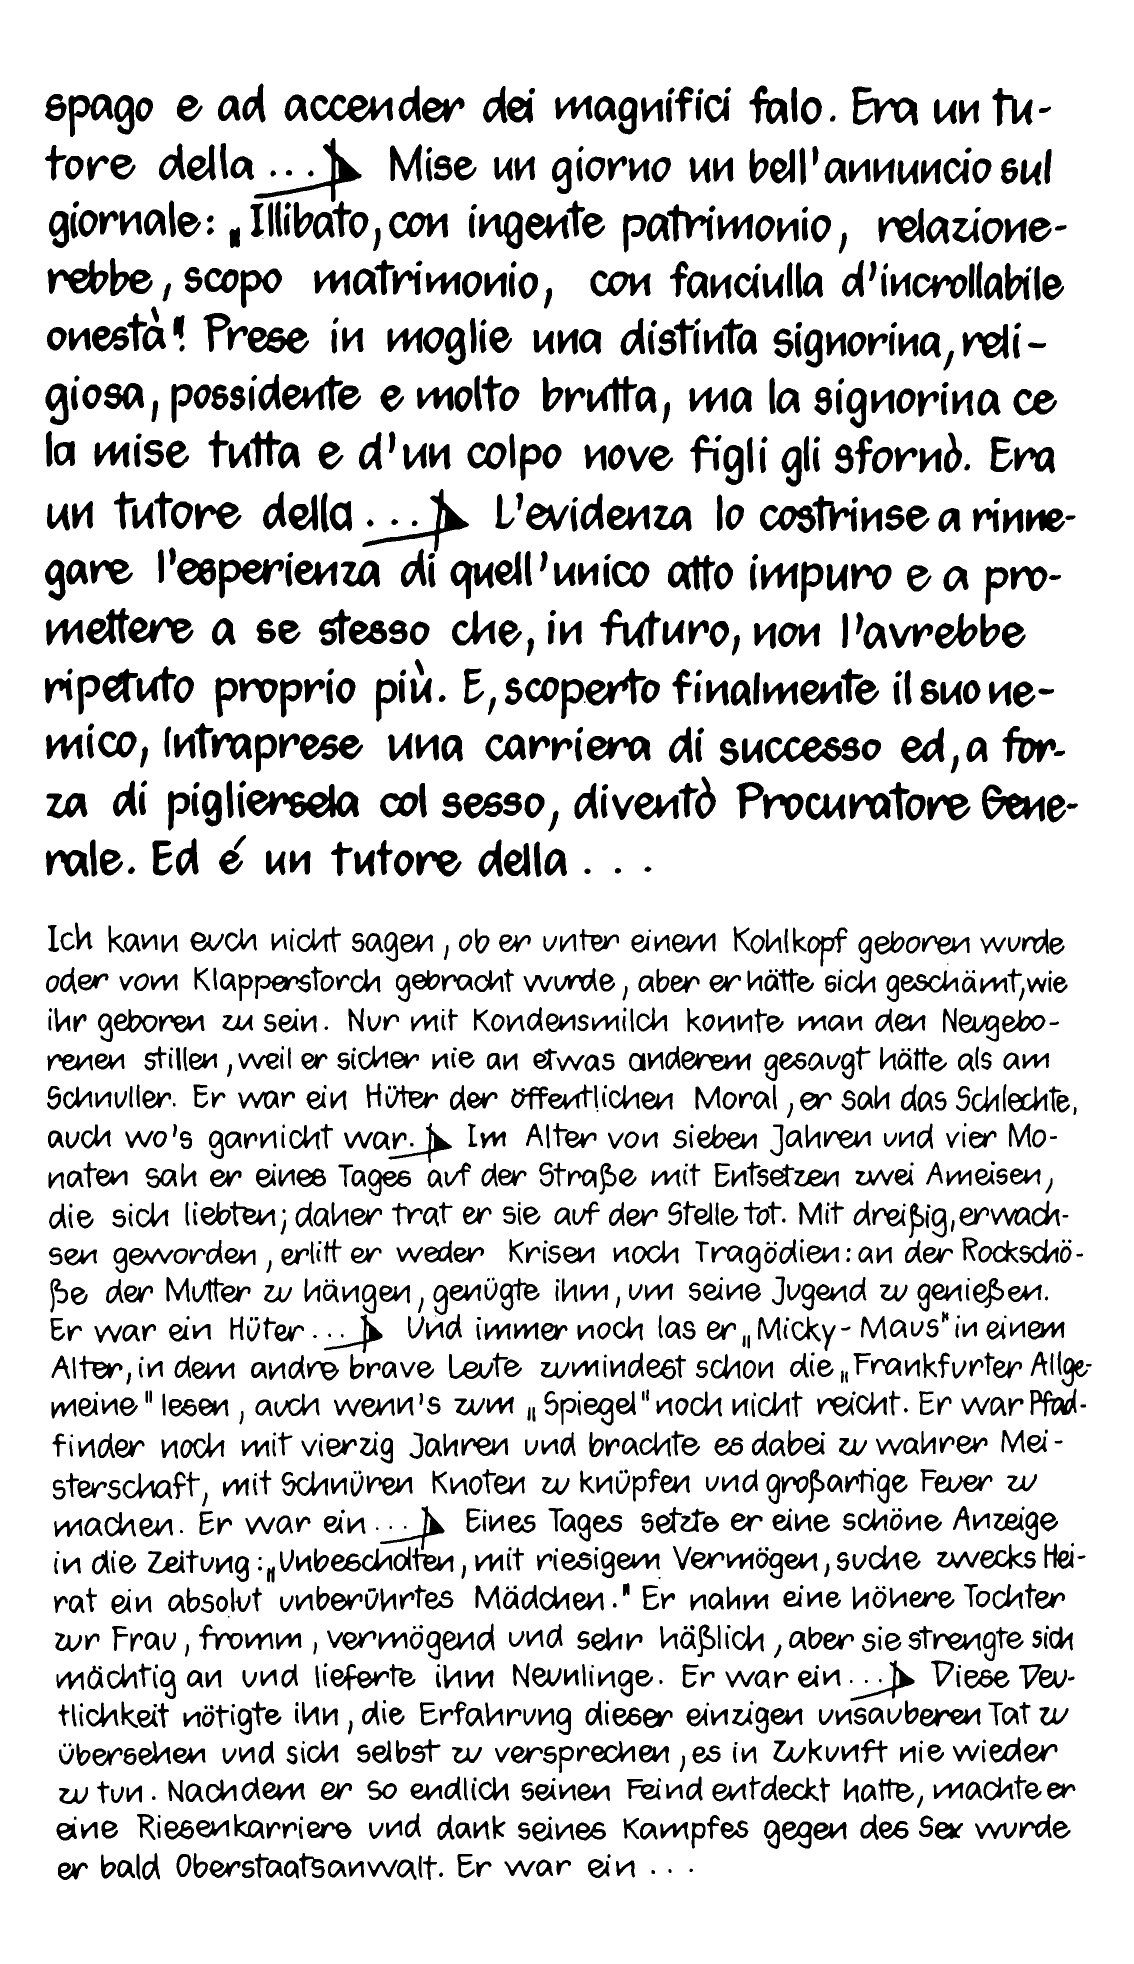 spago e ad accender dei magnifici falo. Era un tu-
tore della ... Mise un giorno un bell'annuncio sul
giornale: „Illibato, con ingente patrimonio, relazione-
rebbe, scopo matrimonio, con fanciulla d'incrollabile
onestà"! Prese in moglie una distinta signorina, reli-
giosa, possidente e molto brutta, ma la signorina ce
la mise tutta e d'un colpo nove figli gli sfornò. Era
un tutore della ... L'evidenza lo costrinse a rinne-
gare l'esperienza di quell'unico atto impuro e a pro-
mettere a se stesso che, in futuro, non l'avrebbe
ripetuto proprio più. E, scoperto finalmente il suo ne-
mico, intraprese una carriera di successo ed, a for-
za di pigliersela col sesso, diventò Procuratore Gene-
rale. Ed é un tutore della ...
Ich kann euch nicht sagen, ob er unter einem Kohlkopf geboren wurde
oder vom Klapperstorch gebracht wurde, aber er hätte sich geschämt, wie
ihr geboren zu sein. Nur mit Kondensmilch konnte man den Neugebo-
renen stillen, weil er sicher nie an etwas anderem gesaugt hätte als am
Schnuller. Er war ein Hüter der öffentlichen Moral, er sah das Schlechte,
auch wo's garnicht war. Im Alter von sieben Jahren und vier Mo-
naten sah er eines Tages auf der Straße mit Entsetzen zwei Ameisen,
die sich liebten; daher trat er sie auf der Stelle tot. Mit dreißig, erwach-
sen geworden, erlitt er weder Krisen noch Tragödien: an der Rockschö-
ße der Mutter zu hängen, genügte ihm, um seine Jugend zu genießen.
Er war ein Hüter ... Und immer noch las er „Micky-Maus" in einem
Alter, in dem andre brave Leute zumindest schon die „Frankfurter Allge-
meine" lesen, auch wenn's zum „Spiegel" noch nicht reicht. Er war Pfad-
finder noch mit vierzig Jahren und brachte es dabei zu wahrer Mei-
sterschaft, mit Schnüren Knoten zu knüpfen und großartige Feuer zu
machen. Er war ein ... Eines Tages setzte er eine schöne Anzeige
in die Zeitung: „Unbescholten, mit riesigem Vermögen, suche zwecks Hei-
rat ein absolut unberührtes Mädchen." Er nahm eine höhere Tochter
zur Frau, fromm, vermögend und sehr häßlich, aber sie strengte sich
mächtig an und lieferte ihm Neunlinge. Er war ein ... Diese Deu-
tlichkeit nötigte ihn, die Erfahrung dieser einzigen unsauberen Tat zu
übersehen und sich selbst zu versprechen, es in Zukunft nie wieder
zu tun. Nachdem er so endlich seinen Feind entdeckt hatte, machte er
eine Riesenkarriere und dank seines Kampfes gegen des Sex wurde
er bald Oberstaatsanwalt. Er war ein ...